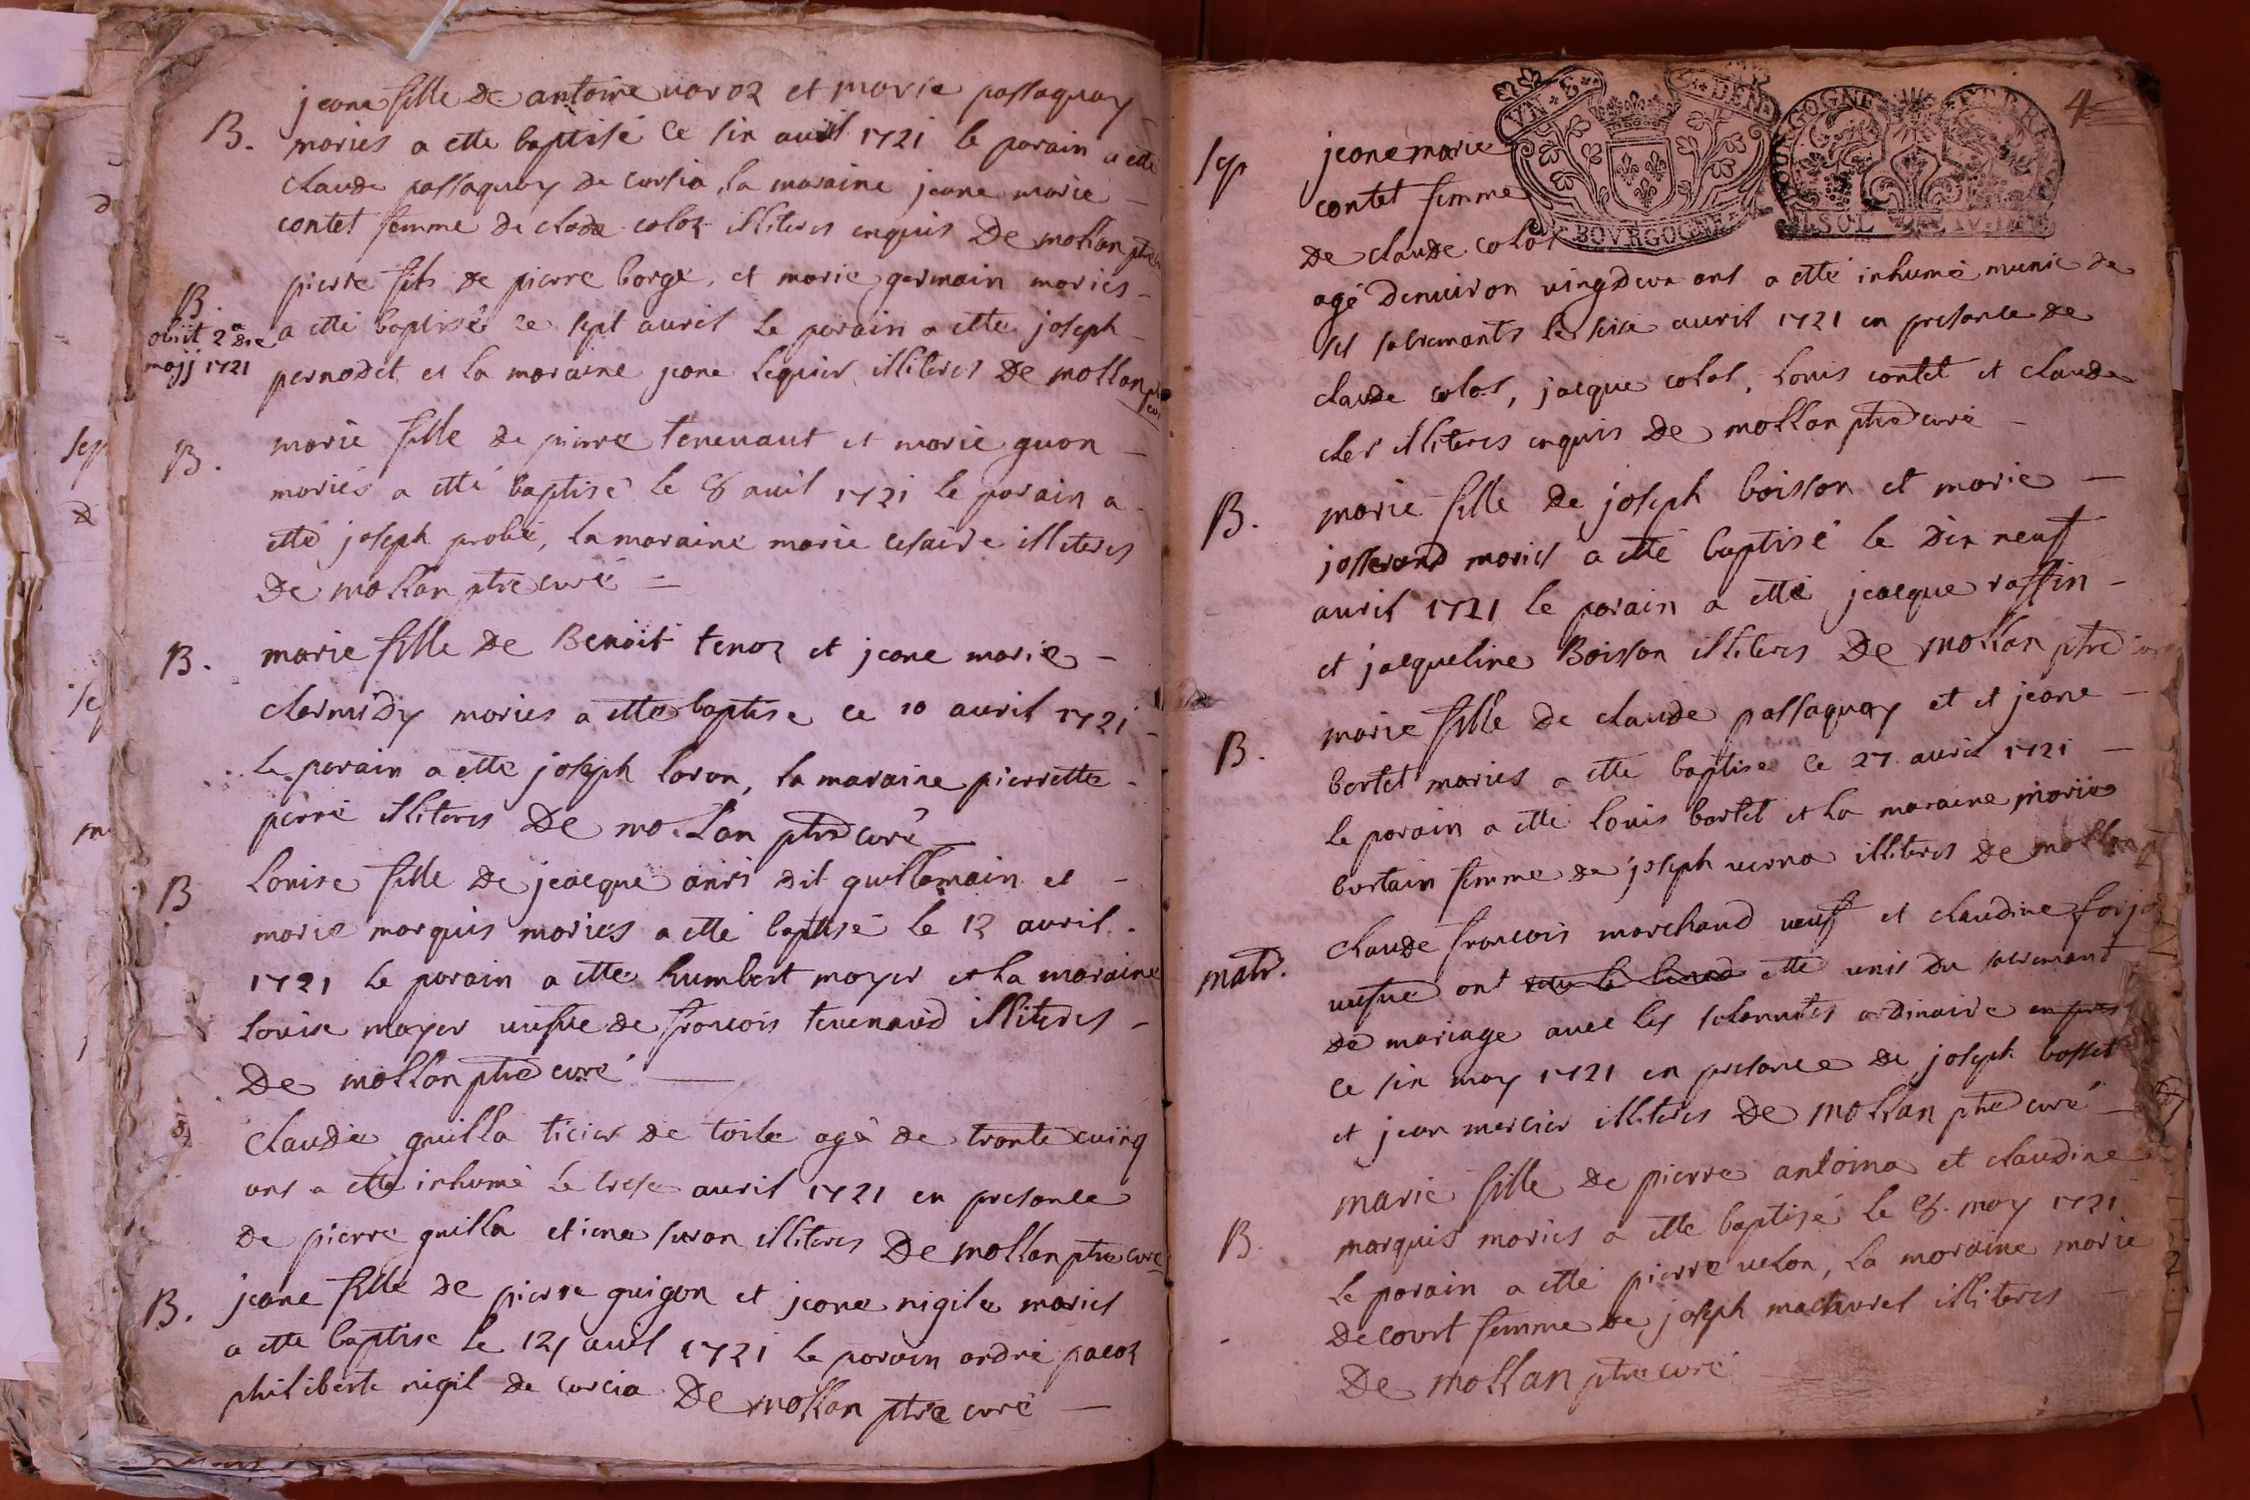 B. jeane fille de antoine varoz et marie passaquay
mariés a etté baptisé ce six avril 1721 le parain a etté
claude passaquay de cursia, la maraine jeane marie
contet femme de claude coloz illiteres enquis De mollan ptre
B. pierre fils de pierre borge, et marie germain mariés
obiit 2a die
maij 1721
a etté baptisé ce sept avril le parain a etté joseph
pernodet et la maraine jeane lequier illiteres De mollan ptre
B. marie fille de pierre tevenaut et marie guon
mariés a etté baptisé le 8 avil 1721 le parain a
etté joseph probé, la maraine marie cesaire illiteres
De mollan ptre curé
B. marie fille de Benoit tenoz et jeane marie
charnidy mariés a etté baptisé ce 10 avril 1721
le parain a etté joseph loron, la maraine pierrette
perré illiteres De mollan ptre curé
B louise fille de jeacque anri dit guillemain et
marie marquis mariés a etté baptisé le 12 avril
1721 le parain a etté humbert moyer et la maraine
louise moyer vefve de francois tevenaud illiteres
De mollan ptre curé
claude guilla ticier de toile agé de trante cuinq
ans a etté inhumé le trese avril 1721 en presance
de pierre guilla etiene suran illiteres De mollan ptre curé
B. jeane fille de pierre guigon et jeane nigile mariés
a etté baptisé le 14 avil 1721 le parain andré pacoz
philiberte nigil de curcia De mollan ptre curé
4
VN DEN
BOVRGOGNE
BOURGOGNE
SOL
sep jeane marie
contet femme
de claude colos
agé denviron vingdeux ans a etté inhumé munie de
ses sacremants le seise avril 1721 en presance de
claude colos, jacque colos, louis contet et claude
cler illiteres enquis De mollan ptre curé
B. marie fille de joseph boisson et marie
josserand mariés a etté baptisé le dix neuf
avril 1721 le parain a etté jeacque raffin
et jacqueline Boisson illiteres De mollan ptre
B. marie fille de claude passaquay et et jeane
bertet mariés a etté baptisé ce 27 avril 1721
le parain a etté louis bartet et la maraine marie
bertain femme de joseph verna illiteres De mollan
matr. claude francois marchand veuf et claudine
vefve ont etté unis du sacremant
de mariage avec les solannités ordinaire en pres
ce six may 1721 en presance de joseph bosset
et jean mercier illiteres De mollan ptre curé
B. marie fille de pierre antoina et claudine
marquis mariés a etté baptisé le 8. may 1721
le parain a etté pierre velon, la maraine marie
decourt femme de joseph mathurel illiteres
De mollan ptre curé